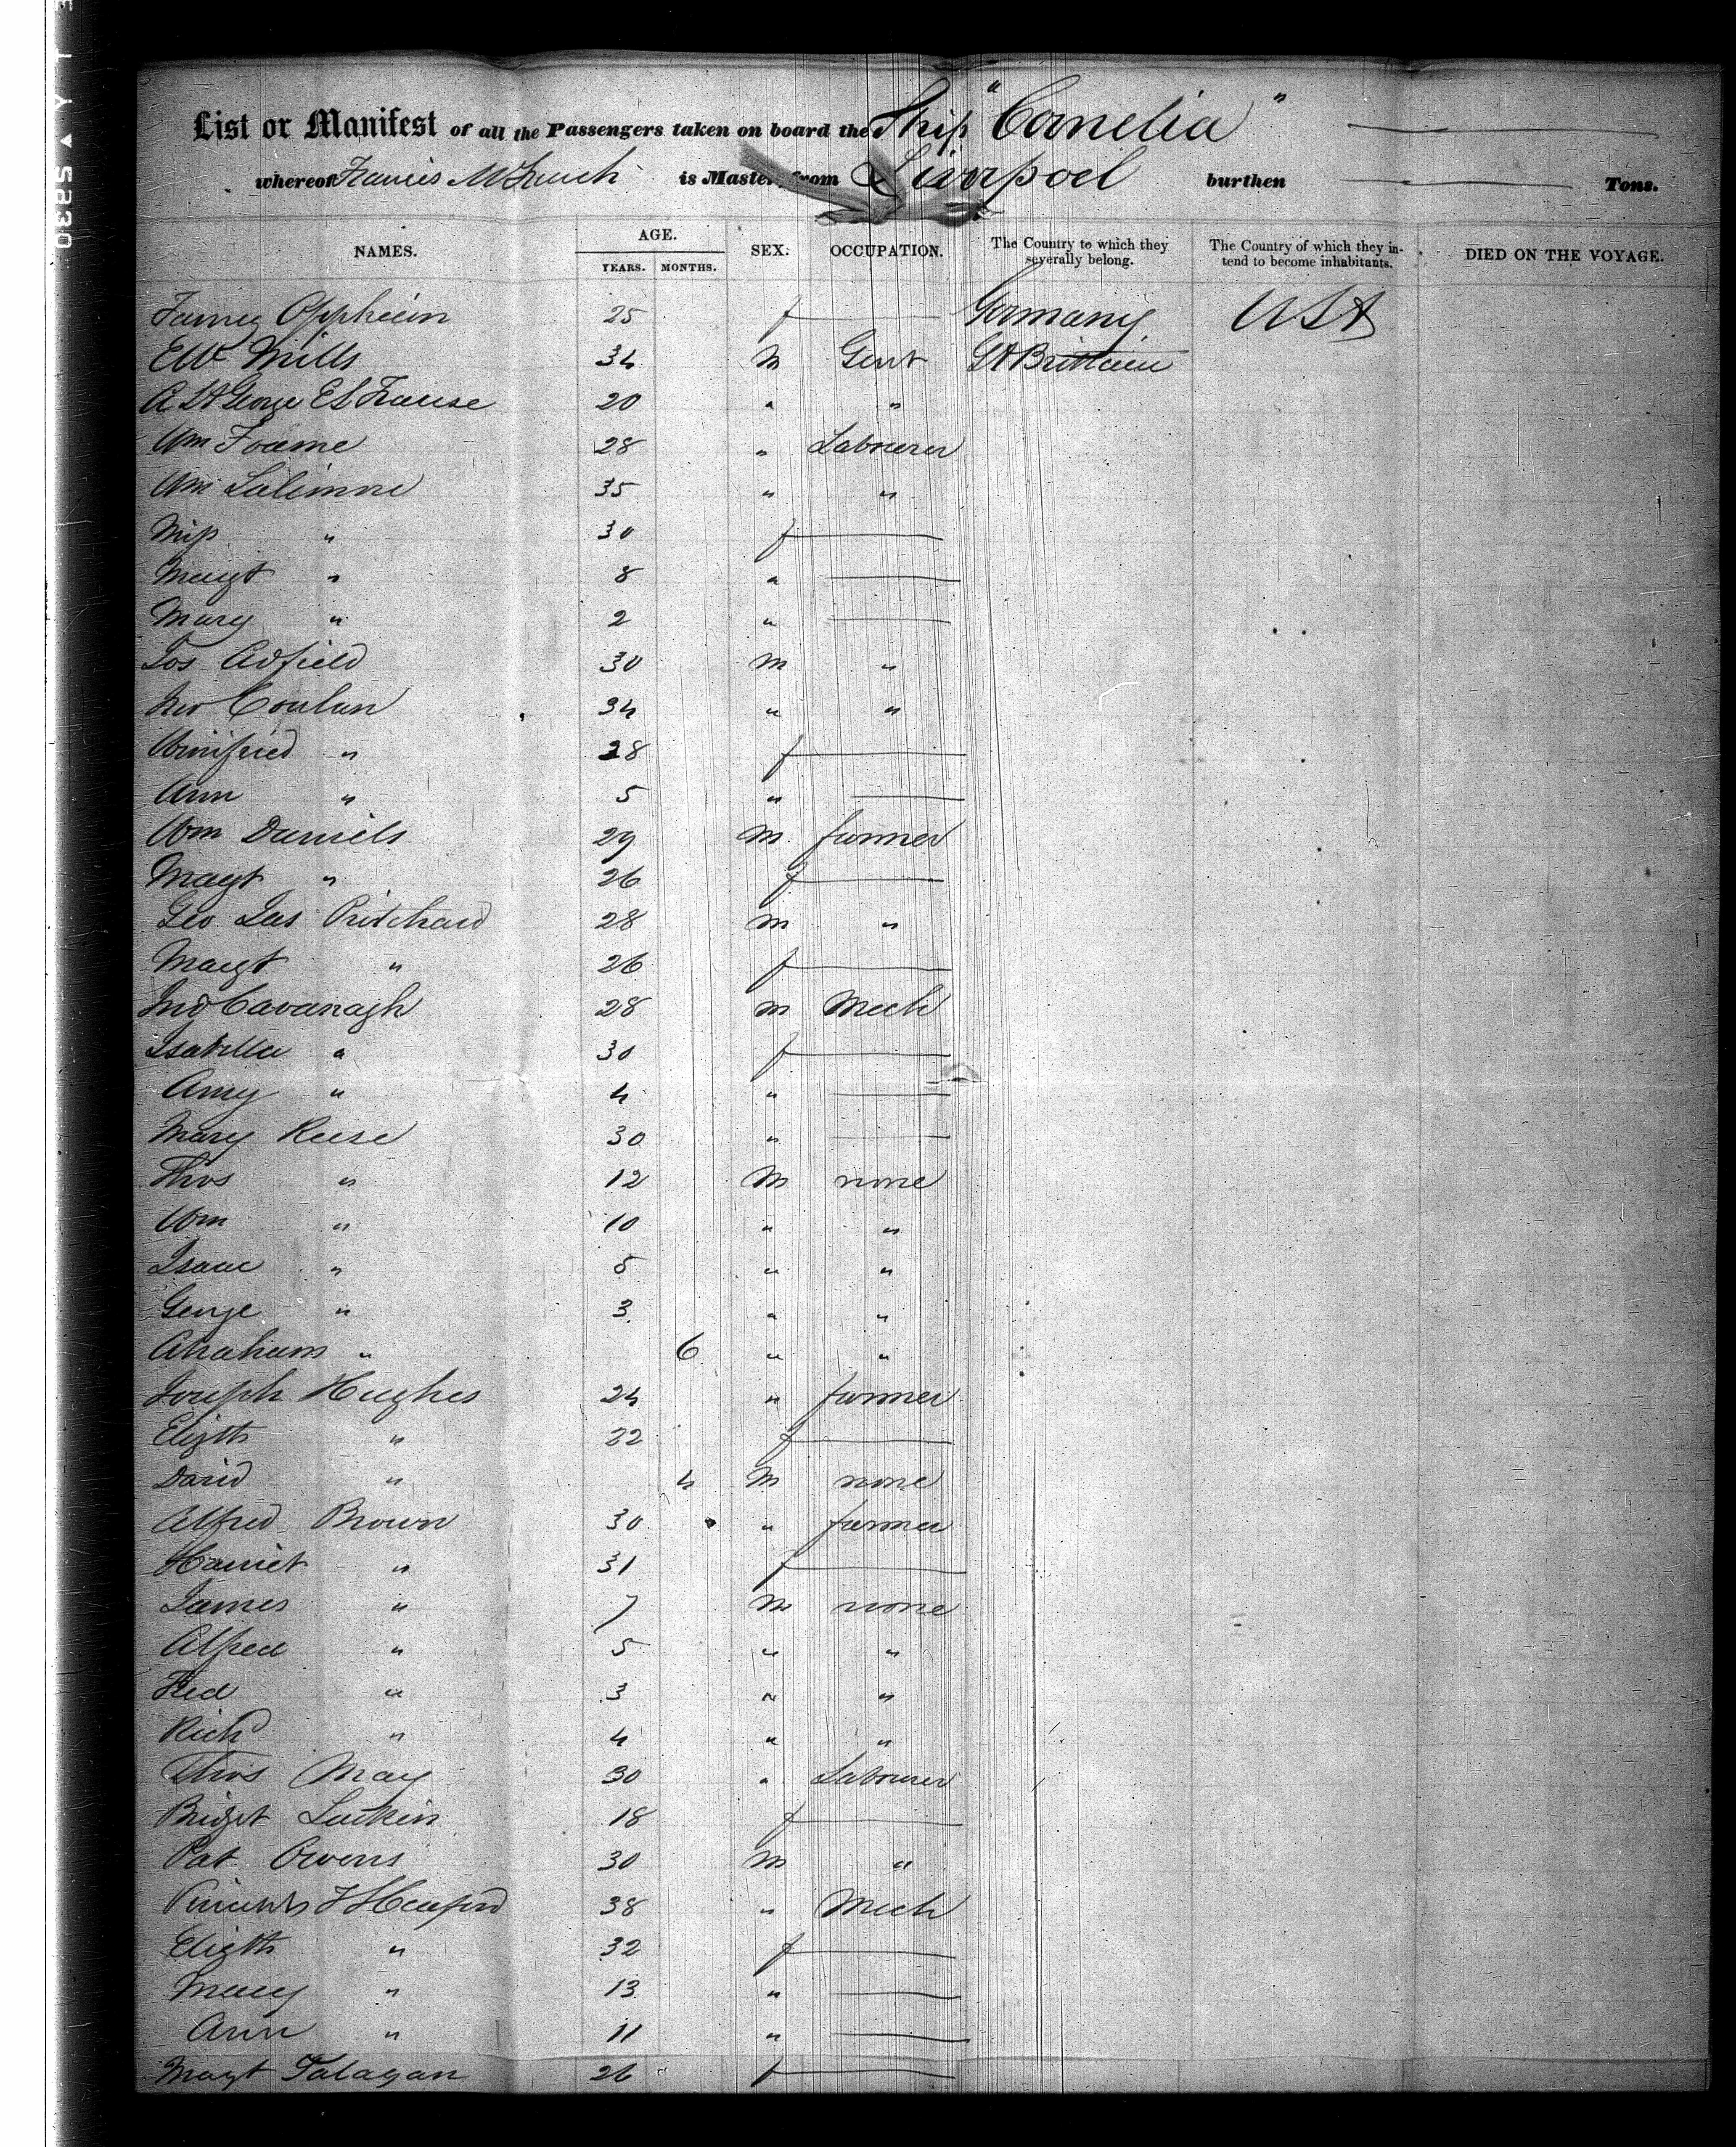 List or Manifest of all the Passengers taken on board the Ship "Camelia"
whereof Francis is Master, from Liverpool burthen Tons.
NAMES. AGE. YEARS. MONTHS. SEX. OCCUPATION. The Country to which they severally belong. The Country of which they intend to become inhabitants. DIED ON THE VOYAGE.
25 f Germany USA
EW Mills 34 M Gent Gt Brittain
A St George 20 " "
Wm 28 " Labourer
Wm 35 " "
" 30 f
Margt " 8 "
Mary " 2 "
Jos Adfield 30 M "
34 " "
Winifried " 28 f
Ann " 5 "
Wm Daniels 29 M farmer
Margt " 26 f
Geo Jas Pritchard 28 M "
Margt " 26 f
Jno Cavanagh 28 M Mech
Isabella " 30 f
Amy " 4 "
Mary Reese 30 "
Thos " 12 M none
Wm " 10 " "
Isaac " 5 " "
George " 3 " "
Abraham " 6 " "
Joseph Hughes 24 " farmer
Elizth " 22 f
David " 4 M none
Alfred Brown 30 " farmer
Harriet " 31 f
James " 7 M none
Alfred " 5 " "
Fred " 3 " "
Richd " 4 " "
Thos May 30 " Labourer
Bridget Larkin 18 f
Pat Owens 30 M "
38 " Mech
Elizth " 32 f
Mary " 13 "
Ann " 11 "
Margt 26 f